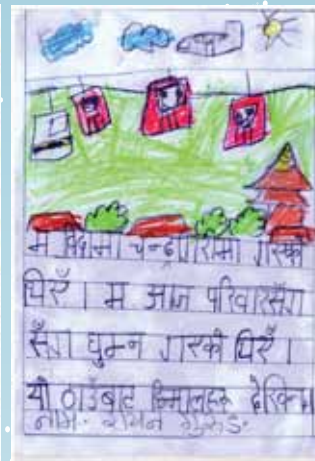 म बिदामा चन्द्रागिरीमा गएको
थिएँ । म आज परिवारसँग
सँग घुम्न गएको थिएँ ।
यो ठाउँबाट हिमालहरू देखिन्छ।
नाम:- गुरुङ